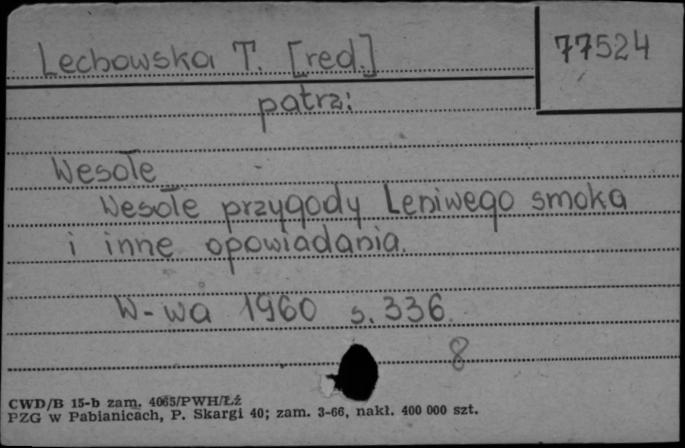 Lechowska T. [red.]
77524
patrz:
Wesołe
Wesołe przygody Leniwego smoka
i inne opowiadania.
W-wa 1960 s. 336
8
CWD/B 15-b zam. 4065/PWH/Łź
PZG w Pabianicach, P. Skargi 40; zam. 3-66, nakł. 400 000 szt.